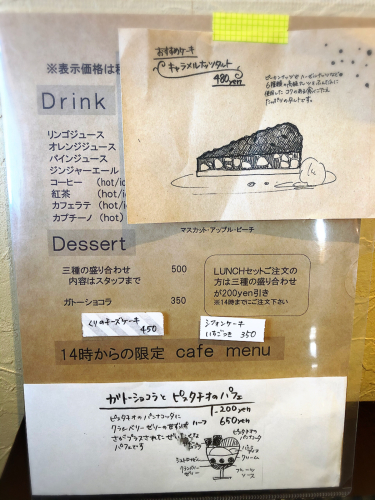 おすすめケーキ
キャラメルナッツタルト
480yen
※表示価格は税
Drink
リンゴジュース
オレンジジュース
パインジュース
ジンジャーエール
コーヒー (hot/ic
紅茶 (hot/ic
カフェラテ (hot/ic
カプチーノ (hot)
マスカット・アップル・ピーチ
Dessert
三種の盛り合わせ 500
内容はスタッフまで
ガトーショコラ 350
LUNCHセットご注文の
方は三種の盛り合わせ
が200yen引き
※14時までにご注文下さい
くりのチーズケーキ
450
シフォンケーキ
いちごつき 350
14時からの限定 cafe menu
ガトーショコラとピスタチオのパフェ
1.200yen
ハーフ 650yen
ピスタチオのパンナコッタに
パフェです
ピスタチオの
パンナコッタ
クリーム
ゼリー
フルーツ
ソース